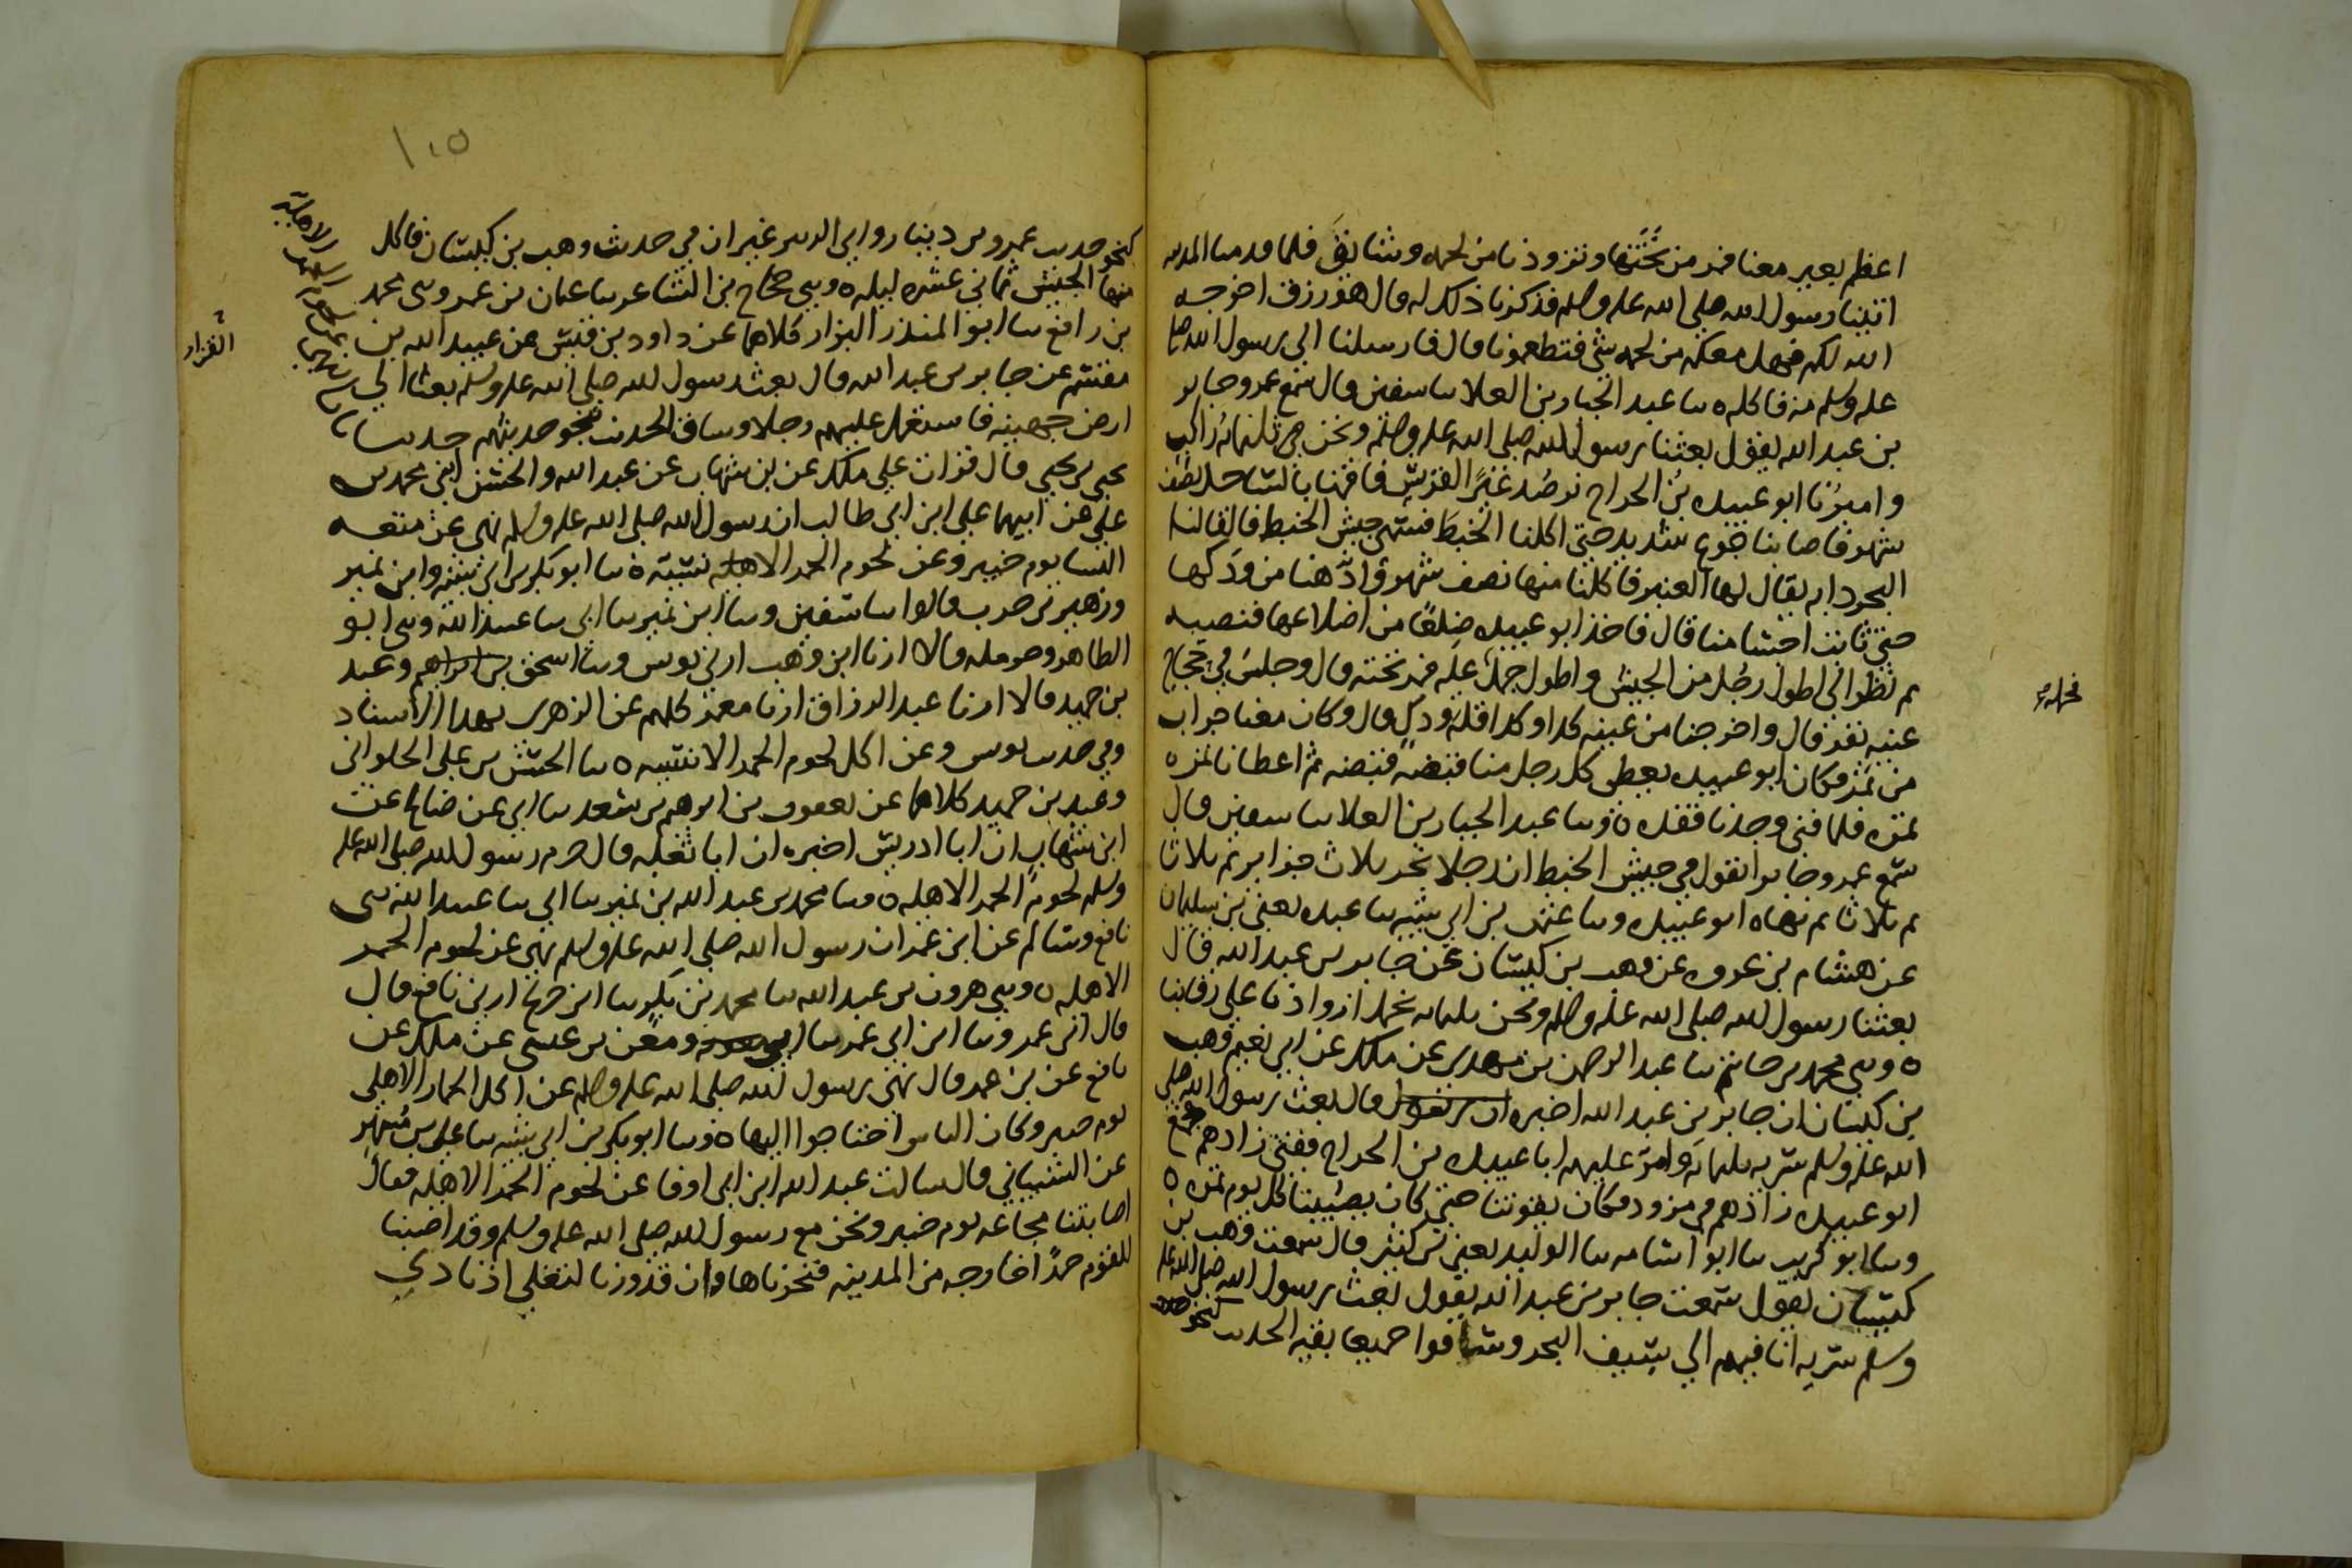 اعظم بعير معنا فمر من تحتها وتزودنا من لحمه وشائق فلما قدمنا المدينه
اتينا رسول الله صلى الله عليه وسلم فذكرنا ذلك له قال هو رزق اخرجه
الله لكم فهل معكم من لحمه شي فتطعمونا قال فارسلنا الي رسول الله صلى
عليه وسلم منه فاكله ٥ سا عبد الجبار بن العلا سا سفين قال سمع عمرو جابر
بن عبد الله يقول بعثنا رسول الله صلى الله عليه وسلم ونحن ثلثمائه راكب
واميرنا ابو عبيده بن الجراح نرصد عير القريش فاقمنا بالساحل نصف
شهر فاصابنا جوع شديد حتى اكلنا الخبط فسمي جيش الخبط فالقا لنا
البحر دابه يقال لها العنبر فاكلنا منها نصف شهر وادهنا من ودكها
حتى ثابت اجسامنا قال فاخذ ابو عبيده ضلعا من اضلاعها فنصبه
ثم نظر الى اطول رجل من الجيش واطول جمل عليه فمر تحته قال وجلس في حجاج
عينه نفر قال واخرجنا من عينه كدا وكدا قله ودك قال وكان معنا جراب
من تمر فكان ابو عبيده يعطى كل رجل منا قبضه قبضه ثم اعطانا تمره
تمره فلما فنى وجدنا فقده ٥ وسا عبد الجبار بن العلا سا سفين قال
سمع عمرو جابرا يقول في جيش الخبط ان رجلا نحر ثلاث جزاير ثم ثلاثا
ثم ثلاثا ثم نهاه ابو عبيده وسا عثمن بن ابي شيبه سا عبده يعني بن سليمان
عن هشام بن عروه عن وهب بن كيسان عن جابر بن عبد الله قال
بعثنا رسول الله صلى الله عليه وسلم ونحن ثلثمايه نحمل ازوادنا على رقابنا
٥ وسي محمد بن حاتم سا عبد الرحمن بن مهدي عن ملك عن ابي نعيم وهب
بن كيسان ان جابر بن عبد الله اخبره قال بعث رسول الله صلى
الله عليه وسلم سريه ثلثمايه وامر عليهم ابا عبيده بن الجراح ففني زادهم فجمع
ابو عبيده زادهم في مزود فكان يقوتنا حتى كان يصيبنا كل يوم تمره ٥
وسا ابو كريب سا ابو اسامه سا الوليد يعني بن كثير قال سمعت وهب بن
كيسان يقول سمعت جابر بن عبد الله يقول بعث رسول الله صلى الله عليه
وسلم سريه انا فيهم الي سيف البحر وساقوا جميعا بقيه الحديث كنحو حديث
كنحو حديث عمرو بن دينار وابي الزبير غير ان في حديث وهب بن كيسان فاكل
منها الجيش ثماني عشره ليله ٥ وسي حجاج بن الشاعر سا عثمان بن عمر وسي محمد
بن رافع سا ابو المنذر البزار كلاهما عن داود بن قيس عن عبيد الله بن
القزاز
مقسم عن جابر بن عبد الله قال بعث رسول الله صلى الله عليه وسلم بعثا الي
ارض جهينه فاستعمل عليهم رجلا وساق الحديث نحو حديثهم حدثنا
يحيى بن يحيى قال قرات على ملك عن بن شهاب عن عبد الله والحسن ابني محمد بن
علي عن ابيهما علي ابن ابي طالب ان رسول الله صلى الله عليه وسلم نهى عن متعه
النسا يوم خيبر وعن لحوم الحمر الاهليه ٥ سا ابو بكر بن ابي شيبه وابن نمير
وزهير بن حرب قالوا سا سفين وسا ابن نمير سا ابي سا عبيد الله وسي ابو
الطاهر وحرمله قالا ارنا ابن وهب ارني يونس وسا اسحق بن ابراهيم وعبد
بن حميد قالا ارنا عبد الرزاق ارنا معمر كلهم عن الزهري بهذا الاسناد
وفي حديث يونس وعن اكل لحوم الحمر الانسيه ٥ سا الحسن بن علي الحلواني
وعبد بن حميد كلاهما عن يعقوب بن ابرهيم بن سعد سا ابي عن صالح عن
ابن شهاب ان ابا ادريس اخبره ان ابا ثعلبه قال حرم رسول الله صلى الله عليه
وسلم لحوم الحمر الاهليه ٥ وسا محمد بن عبد الله بن نمير سا ابي سا عبيد الله سي
نافع وسالم عن ابن عمر ان رسول الله صلى الله عليه وسلم نهى عن لحوم الحمر
الاهليه ٥ وسي هرون بن عبد الله سا محمد بن بكر سا ابن جريج ارني نافع قال
قال ابن عمر وسا ابن ابي عمر سا ابي ومعن بن عيسى عن ملك عن
نافع عن بن عمر قال نهى رسول الله صلى الله عليه وسلم عن اكل الحمار الاهلي
يوم خيبر وكان الناس احتاجوا اليها ٥ وسا ابو بكر بن ابي شيبه سا علي بن مسهر
عن الشيباني قال سالت عبد الله ابن ابي اوفا عن لحوم الحمر الاهليه فقال
اصابتنا مجاعه يوم خيبر ونحن مع رسول الله صلى الله عليه وسلم وقد اصبنا
للقوم حمرا خارجه من المدينه فنحرناها وان قدورنا لتغلي اذ نادي
١٠٥